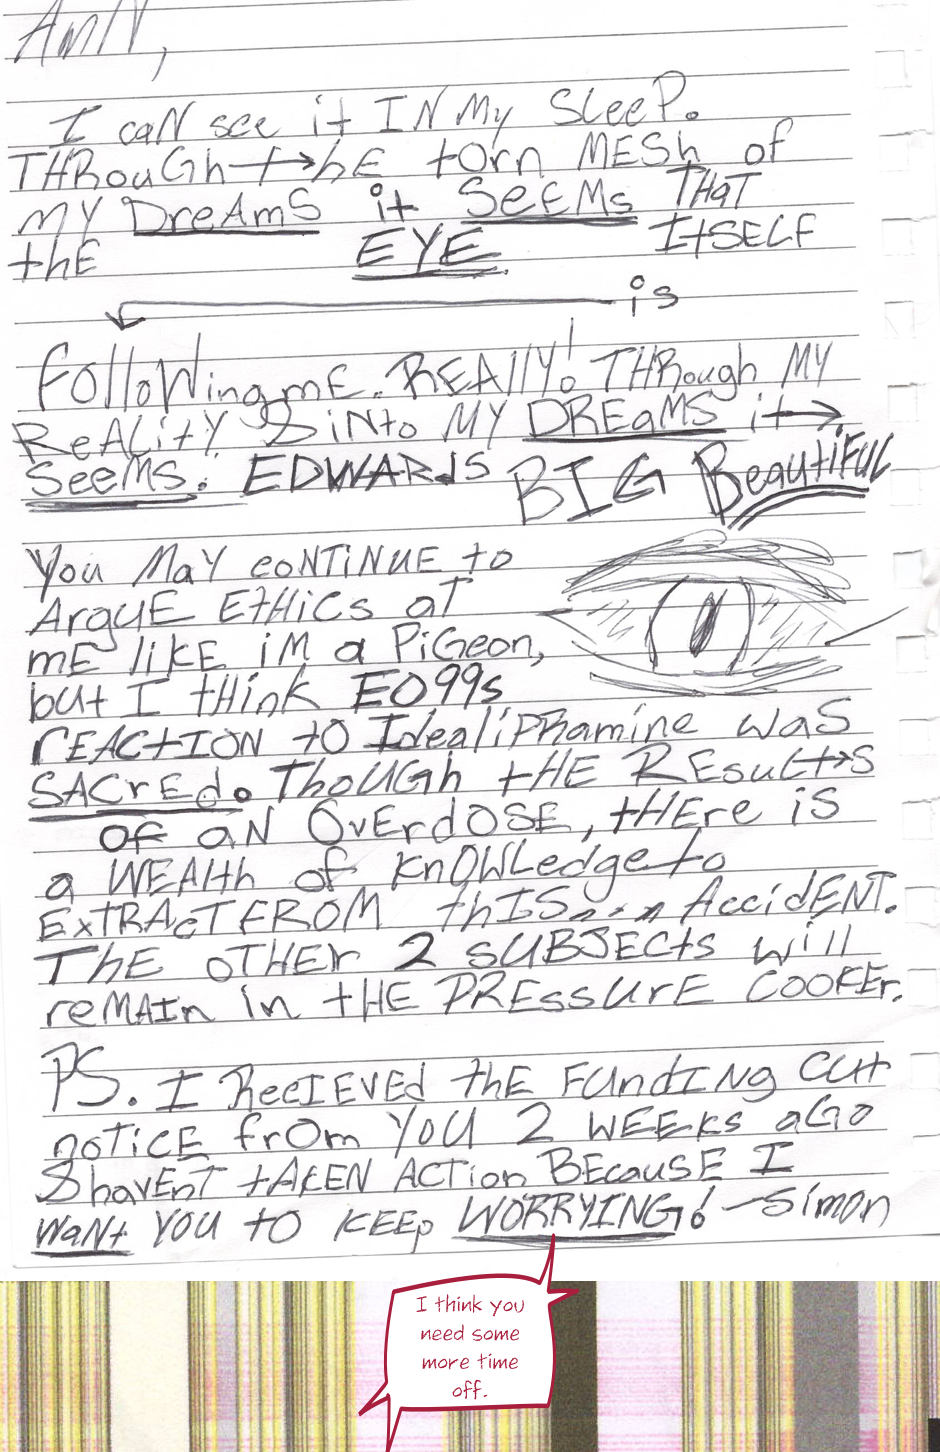 Amn,
I caN see it IN My SleeP.
THRouGh thE torn MESh of
MY DreAmS it SEEMs THaT
thE EYE ItSELF
is
FolloWing mE. REAllY! THRough MY
ReALitY & iNto MY DREaMS it
SeeMs. EDWARdS BIG BeautiFUL
You MaY coNTiNUE to
ArguE EtHiCs aT
mE liKE iM a PiGeon,
but I tHink EO99s
rEACtION tO IdealiPhRamine waS
SACrEd. ThoUGh tHE REsultS
oF aN OvErdOSE, tHEre iS
a WEAlth of KnOWLedge to
ExtRAcT FROM thIS... AccidENT.
ThE oTHEr 2 SUBJECts will
reMAIn in tHE PREssUrE COOKEr.
PS. I RecIEVEd thE FUndINg CUt
noTiCE frOm YOU 2 WEEKs aGo
& havEnT tAKEN ACTion BEcauSE I
WaNt YOU tO KEEp WORRYING! -Simon
I think you
need some
more time
off.